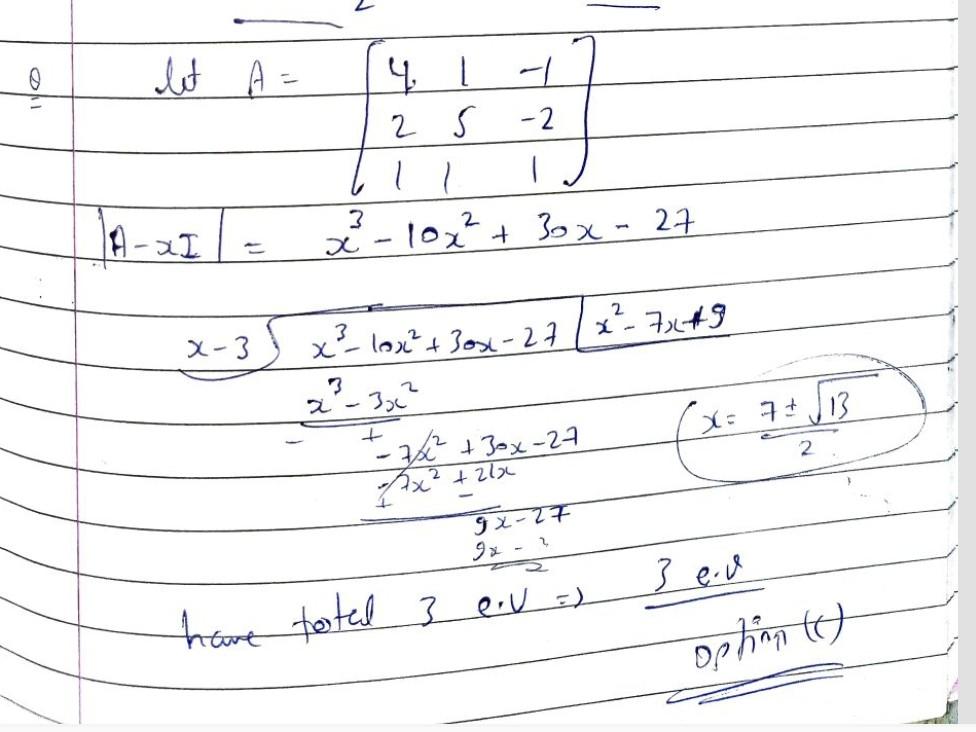 Q let A = [4 1 -1
2 5 -2
1 1 1]
|A-xI| = x³ - 10x² + 30x - 27
x-3 ) x³ - 10x² + 30x - 27 | x² - 7x + 9
x³ - 3x²
- +
-7x² + 30x - 27
-7x² + 21x
+ -
9x - 27
9x -
x = 7 ± √13 / 2
have total 3 e.v => 3 e.v
option (C)